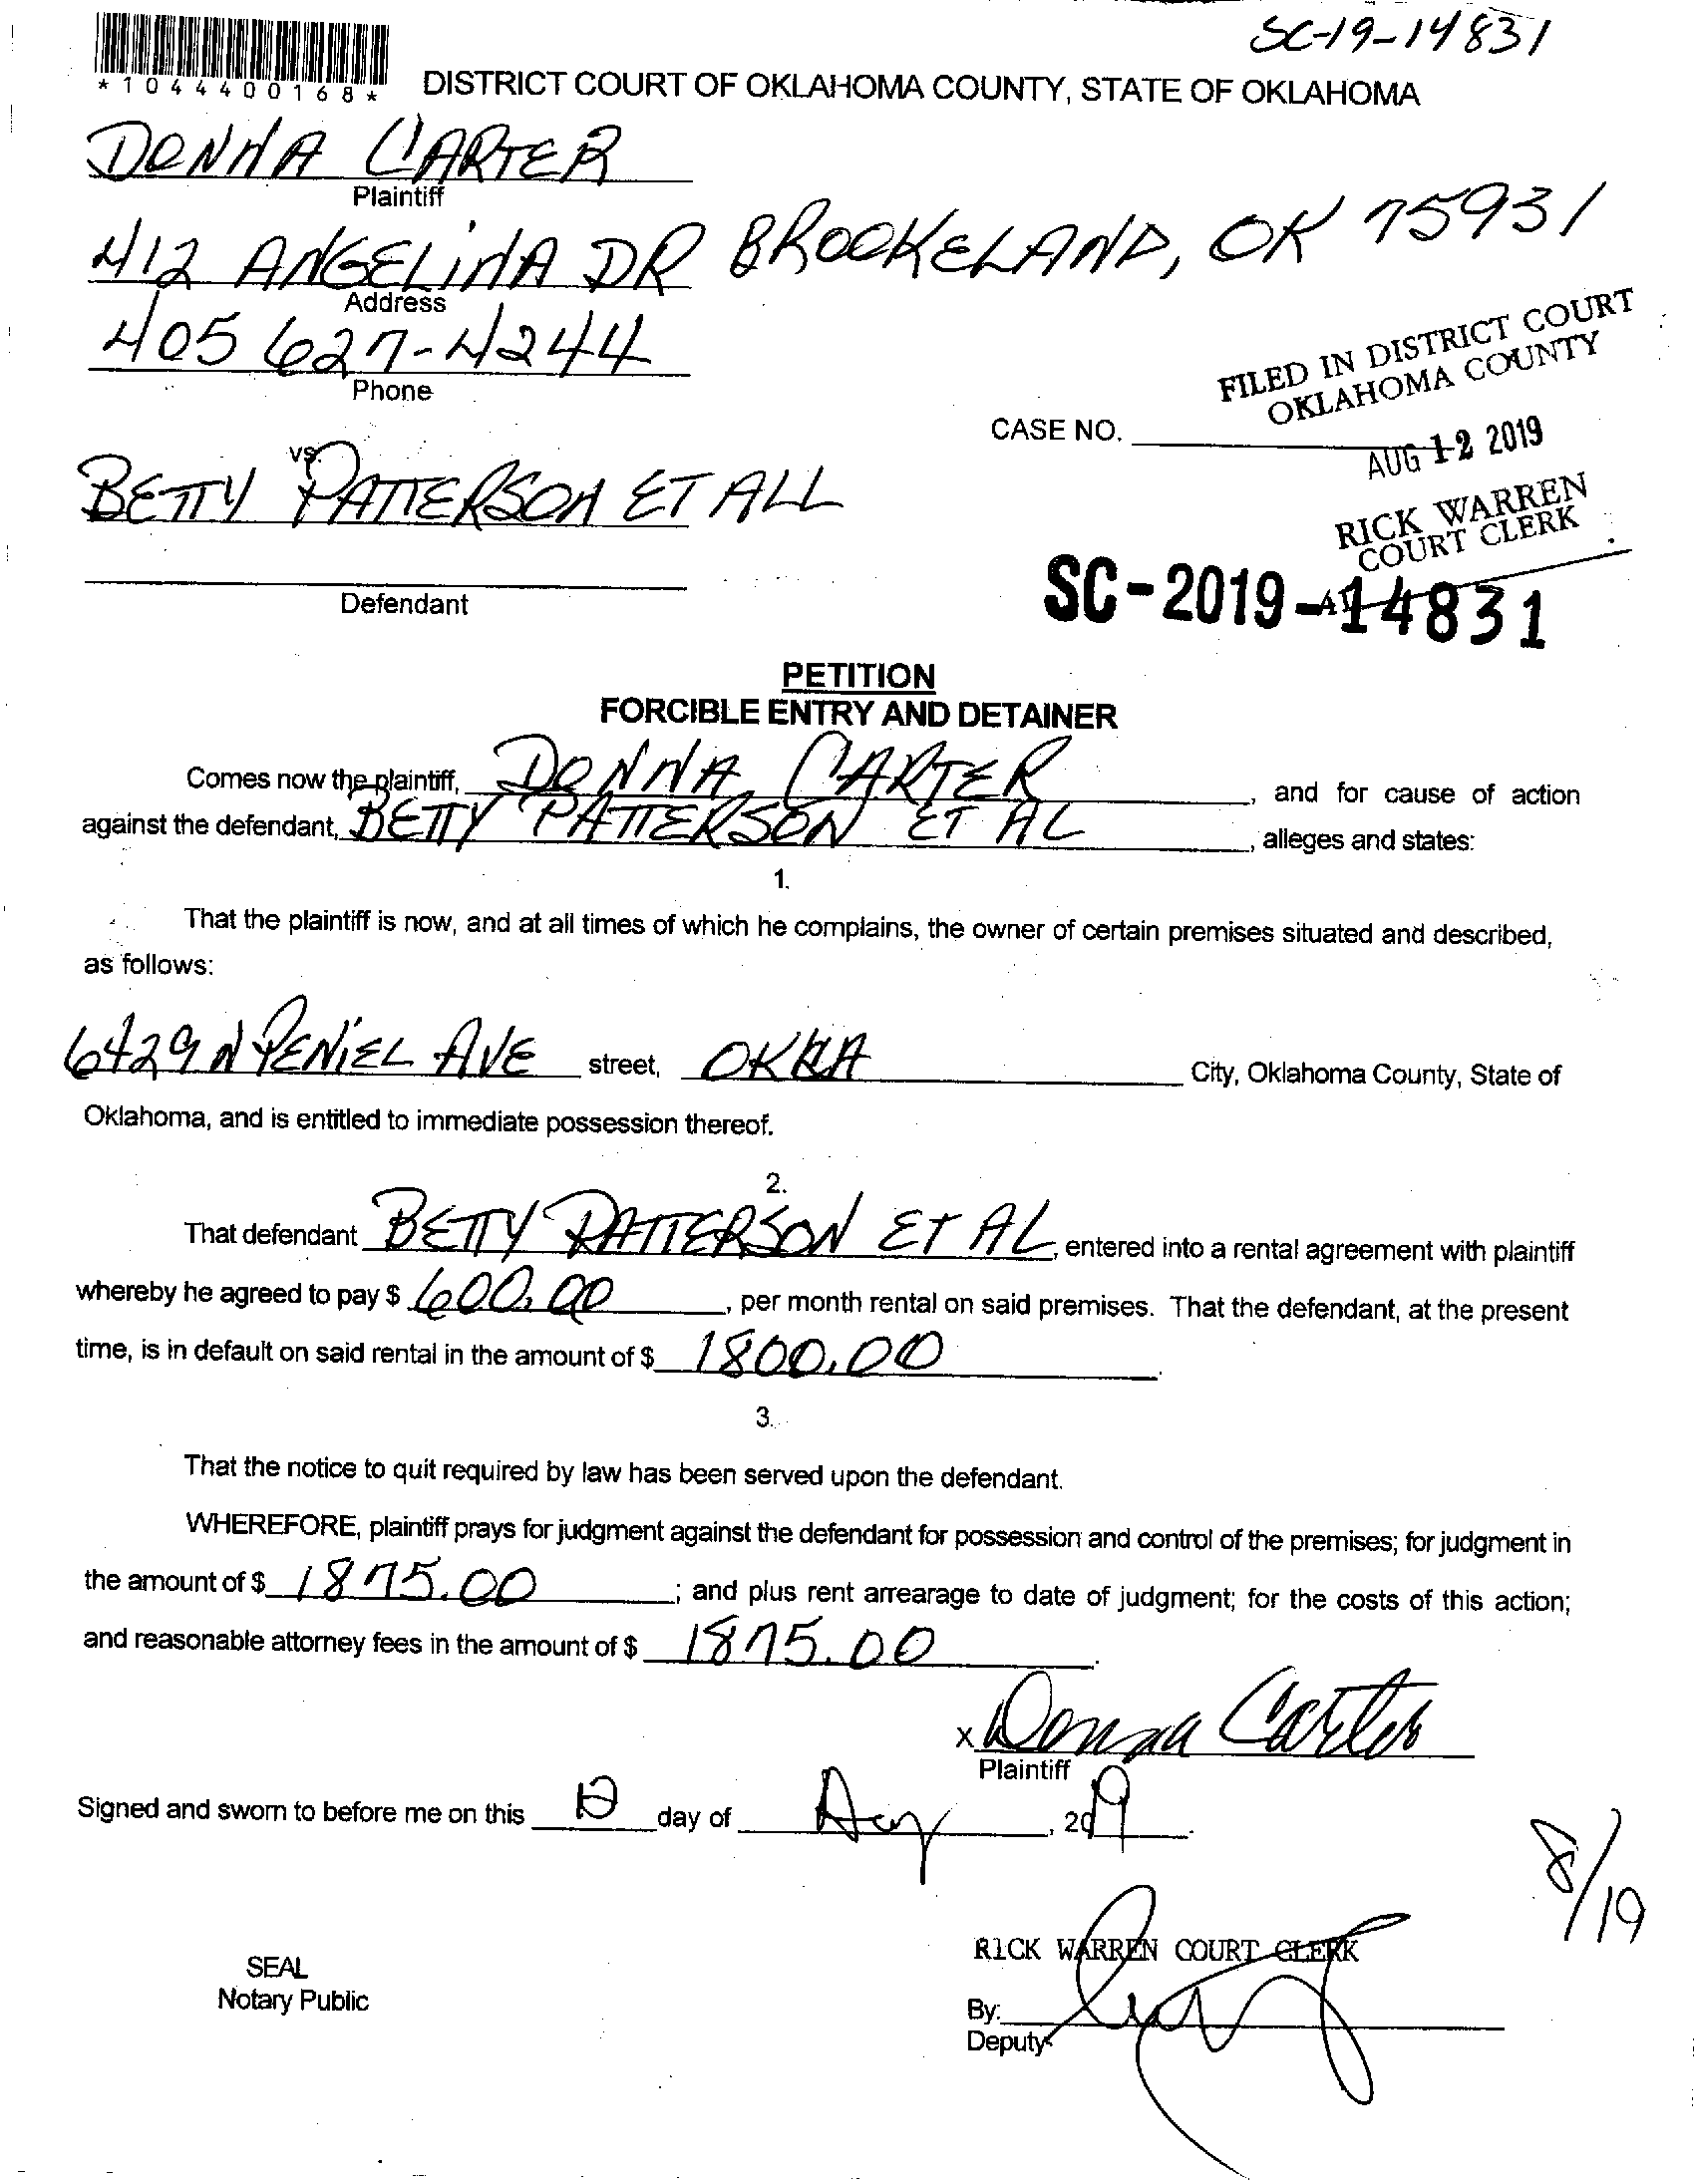 SC-19-14831
*1044400168*
DISTRICT COURT OF OKLAHOMA COUNTY, STATE OF OKLAHOMA
DONNA CARTER
Plaintiff
412 ANGELINA DR BROOKELAND, OK 75931
Address
405 627-4244
Phone
FILED IN DISTRICT COURT
OKLAHOMA COUNTY
CASE NO.
AUG 12 2019
vs.
BETTY PATTERSON ET ALL
RICK WARREN
COURT CLERK
Defendant
SC-2019-14831
PETITION
FORCIBLE ENTRY AND DETAINER
Comes now the plaintiff, DONNA CARTER, and for cause of action
against the defendant, BETTY PATTERSON ET AL, alleges and states:
1.
That the plaintiff is now, and at all times of which he complains, the owner of certain premises situated and described,
as follows:
6429 N PENIEL AVE street, OKLA City, Oklahoma County, State of
Oklahoma, and is entitled to immediate possession thereof.
2.
That defendant BETTY PATTERSON ET AL, entered into a rental agreement with plaintiff
whereby he agreed to pay $ 600.00, per month rental on said premises. That the defendant, at the present
time, is in default on said rental in the amount of $ 1800.00.
3.
That the notice to quit required by law has been served upon the defendant.
WHEREFORE, plaintiff prays for judgment against the defendant for possession and control of the premises; for judgment in
the amount of $ 1875.00; and plus rent arrearage to date of judgment; for the costs of this action;
and reasonable attorney fees in the amount of $ 1875.00.
x Donna Carter
Plaintiff
Signed and sworn to before me on this 12 day of Aug, 2019.
8/19
RICK WARREN COURT CLERK
SEAL
Notary Public
By:
Deputy